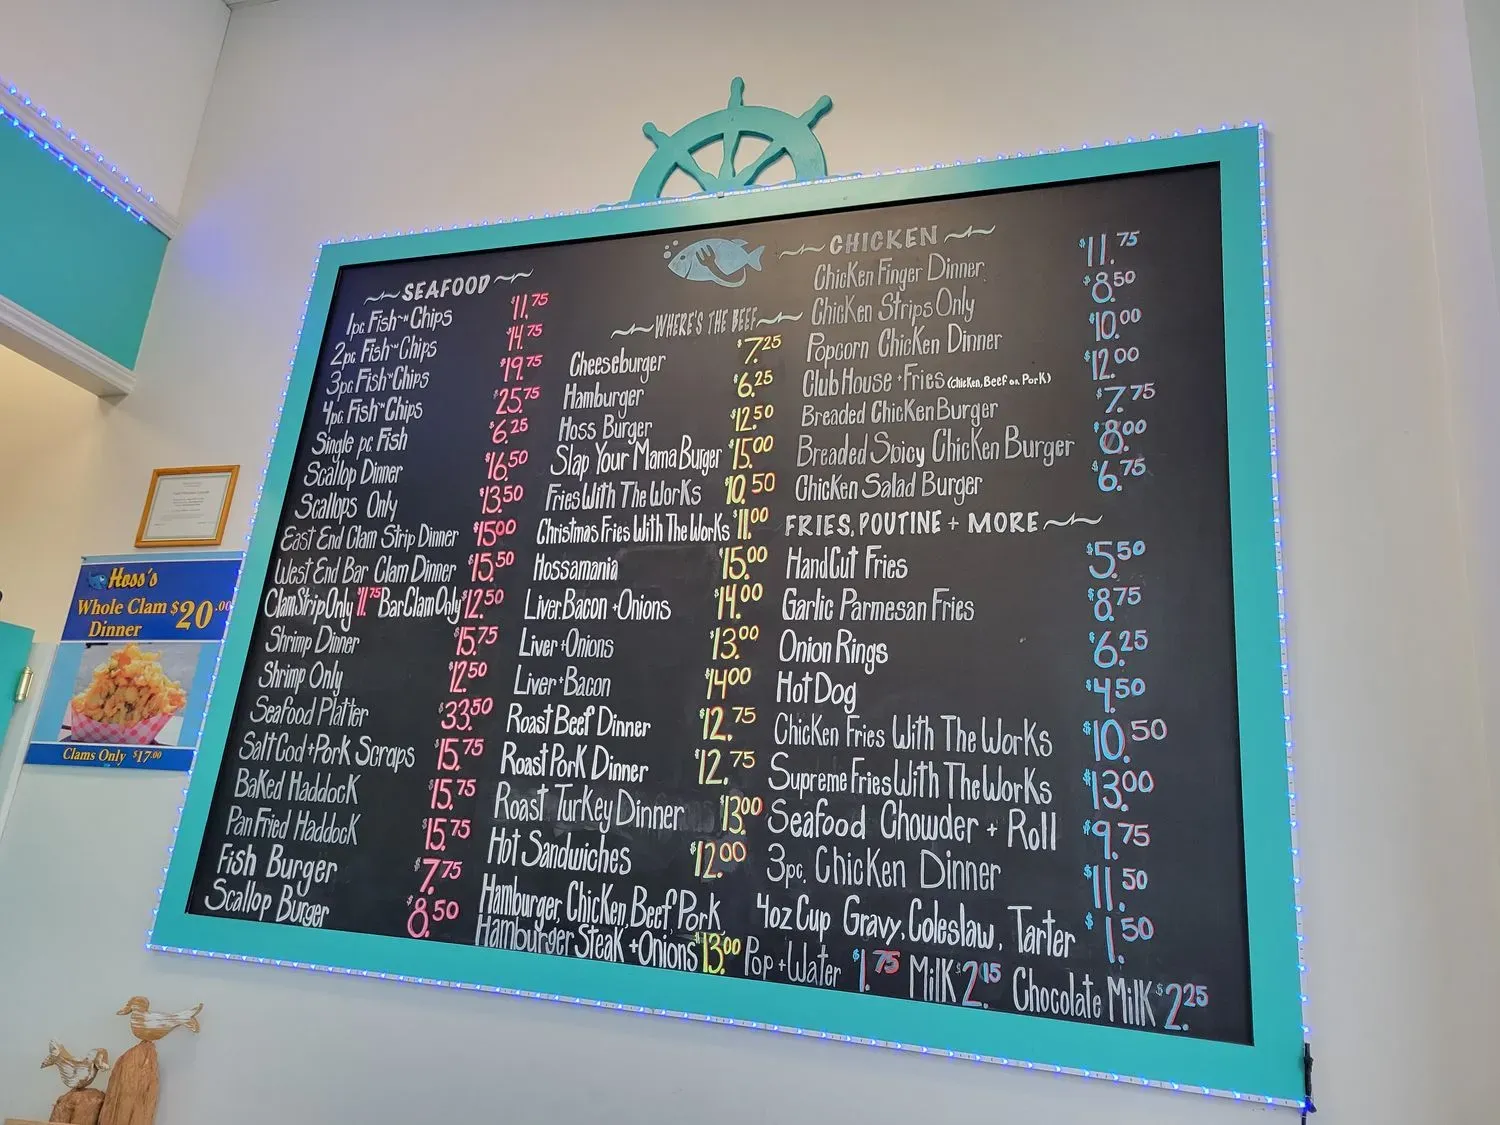 SEAFOOD
1pc. Fish "n" Chips $11.75
2pc Fish "n" Chips $14.75
3pc Fish "n" Chips $19.75
4pc Fish "n" Chips $25.75
Single pc. Fish $6.25
Scallop Dinner $16.50
Scallops Only $13.50
East End Clam Strip Dinner $15.00
West End Bar Clam Dinner $15.50
Clam Strip Only $11.75 Bar Clam Only $12.50
Shrimp Dinner $15.75
Shrimp Only $12.50
Seafood Platter $33.50
Salt Cod + Pork Scraps $15.75
Baked Haddock $15.75
Pan Fried Haddock $15.75
Fish Burger $7.75
Scallop Burger $8.50
WHERE'S THE BEEF
Cheeseburger $7.25
Hamburger $6.25
Hoss Burger $12.50
Slap Your Mama Burger $15.00
Fries With The Works $10.50
Christmas Fries With The Works $11.00
Hossamania $15.00
Liver, Bacon + Onions $14.00
Liver + Onions $13.00
Liver + Bacon $14.00
Roast Beef Dinner $12.75
Roast Pork Dinner $12.75
Roast Turkey Dinner $13.00
Hot Sandwiches $12.00
Hamburger, Chicken, Beef, Pork
Hamburger Steak + Onions $13.00
CHICKEN
Chicken Finger Dinner $11.75
Chicken Strips Only $8.50
Popcorn Chicken Dinner $10.00
Club House + Fries (Chicken, Beef or Pork) $12.00
Breaded Chicken Burger $7.75
Breaded Spicy Chicken Burger $8.00
Chicken Salad Burger $6.75
FRIES, POUTINE + MORE
Hand Cut Fries $5.50
Garlic Parmesan Fries $8.75
Onion Rings $6.25
Hot Dog $4.50
Chicken Fries With The Works $10.50
Supreme Fries With The Works $13.00
Seafood Chowder + Roll $9.75
3pc. Chicken Dinner $11.50
4oz Cup Gravy, Coleslaw, Tarter $1.50
Pop + Water $1.75 Milk $2.15 Chocolate Milk $2.25
Hoss's
Whole Clam $20.00
Dinner
Clams Only $17.00